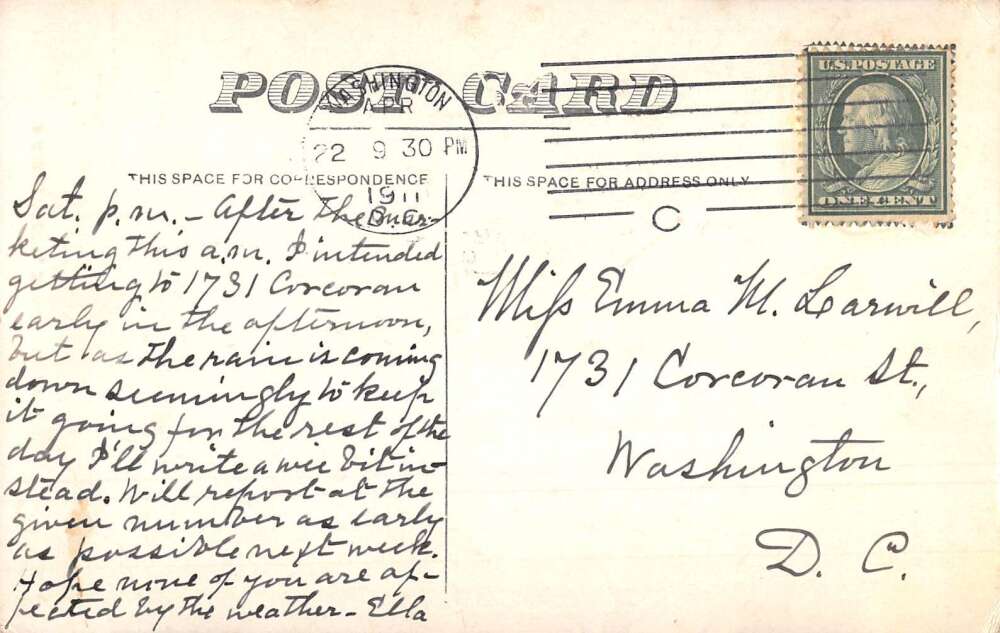 POST CARD
WASHINGTON
APR
22 9 30 PM
1911
D.C.
U.S. POSTAGE
ONE CENT
C
THIS SPACE FOR CORRESPONDENCE
THIS SPACE FOR ADDRESS ONLY
Sat. p.m. - After the mar-
keting this a.m. I intended
getting to 1731 Corcoran
early in the afternoon,
but as the rain is coming
down seemingly to keep
it going for the rest of the
day I'll write a wee bit in-
stead. Will report at the
given number as early
as possible next week.
Hope none of you are af-
fected by the weather - Ella
Miss Emma M. Larwill,
1731 Corcoran St.,
Washington
D. C.